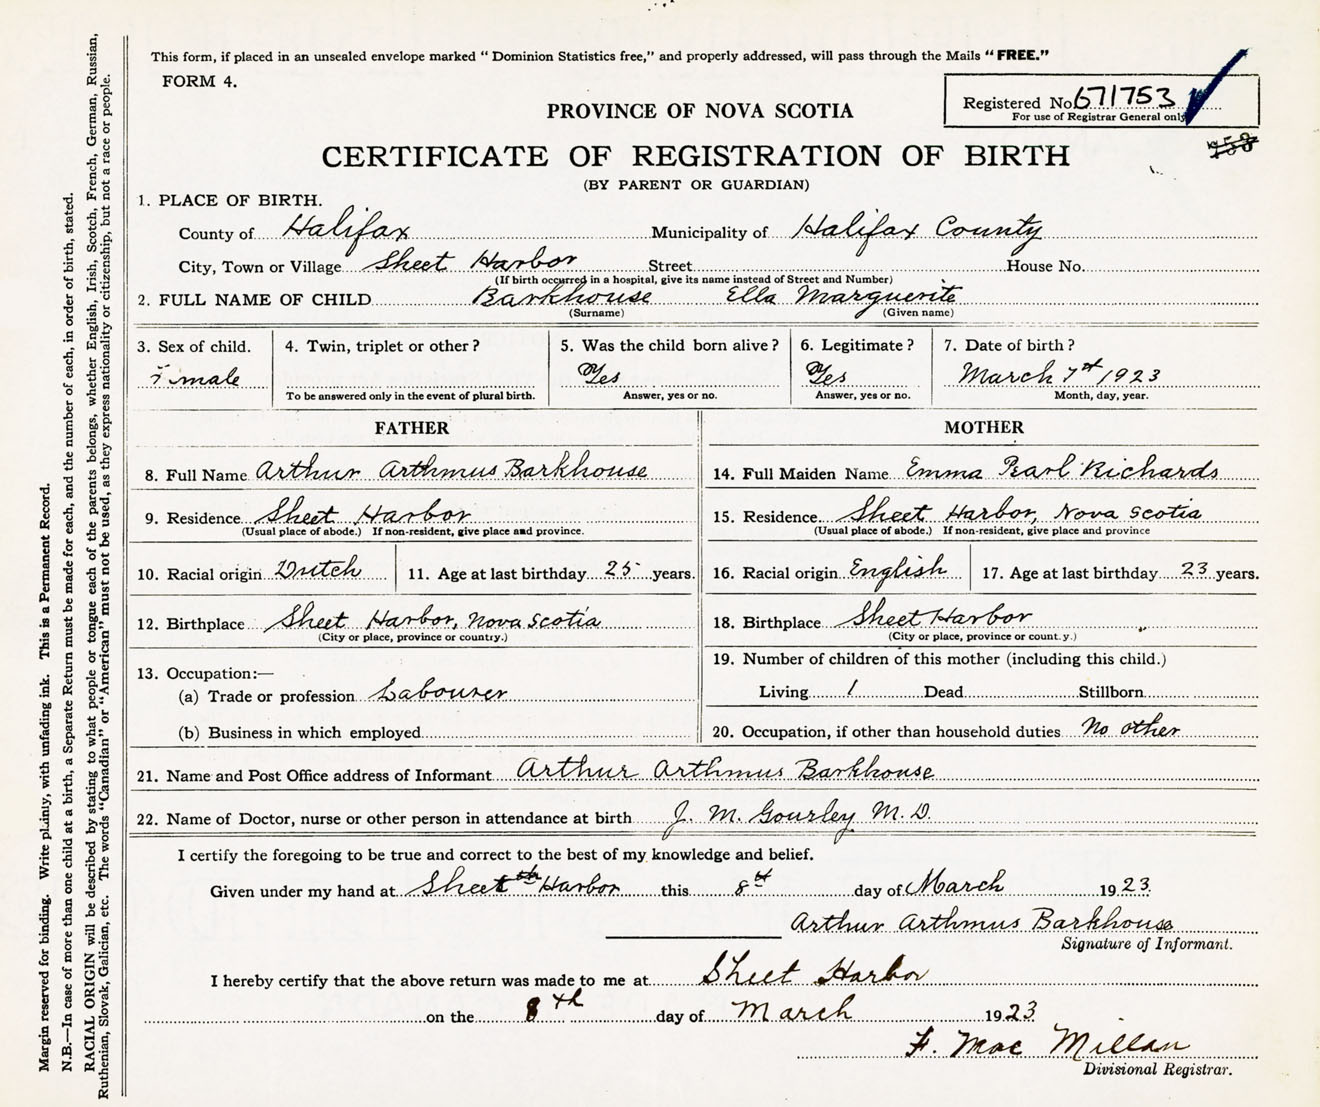 This form, if placed in an unsealed envelope marked “ Dominion Statistics free,” and properly addressed, will pass through the Mails “ FREE.”
FORM 4.
Registered No. 671753
For use of Registrar General only
PROVINCE OF NOVA SCOTIA
CERTIFICATE OF REGISTRATION OF BIRTH
(BY PARENT OR GUARDIAN)
1. PLACE OF BIRTH.
County of Halifax Municipality of Halifax County
City, Town or Village Sheet Harbor Street House No.
(If birth occurred in a hospital, give its name instead of Street and Number)
2. FULL NAME OF CHILD Barkhouse Ella Marguerite
(Surname) (Given name)
3. Sex of child. 4. Twin, triplet or other? 5. Was the child born alive? 6. Legitimate? 7. Date of birth?
Female Yes Yes March 7th 1923
To be answered only in the event of plural birth. Answer, yes or no. Answer, yes or no. Month, day, year.
FATHER
8. Full Name Arthur Arthmus Barkhouse
9. Residence Sheet Harbor
(Usual place of abode.) If non-resident, give place and province.
10. Racial origin Dutch 11. Age at last birthday 25 years.
12. Birthplace Sheet Harbor, Nova Scotia
(City or place, province or country.)
13. Occupation:—
(a) Trade or profession Labourer
(b) Business in which employed
MOTHER
14. Full Maiden Name Emma Pearl Richards
15. Residence Sheet Harbor, Nova Scotia
(Usual place of abode.) If non-resident, give place and province
16. Racial origin English 17. Age at last birthday 23 years.
18. Birthplace Sheet Harbor
(City or place, province or count.y.)
19. Number of children of this mother (including this child.)
Living 1 Dead Stillborn
20. Occupation, if other than household duties No other
21. Name and Post Office address of Informant Arthur Arthmus Barkhouse
22. Name of Doctor, nurse or other person in attendance at birth J. M. Gourley M. D.
I certify the foregoing to be true and correct to the best of my knowledge and belief.
Given under my hand at Sheet Harbor this 8th day of March 1923.
Arthur Arthmus Barkhouse
Signature of Informant.
I hereby certify that the above return was made to me at Sheet Harbor
on the 8th day of March 1923
F. Mac Millan
Divisional Registrar.
Margin reserved for binding. Write plainly, with unfading ink. This is a Permanent Record.
N.B.—In case of more than one child at a birth, a Separate Return must be made for each, and the number of each, in order of birth, stated.
RACIAL ORIGIN will be described by stating to what people or tongue each of the parents belongs, whether English, Irish, Scotch, French, German, Russian,
Ruthenian, Slovak, Galician, etc. The words “Canadian” or “American” must not be used, as they express nationality or citizenship, but not a race or people.